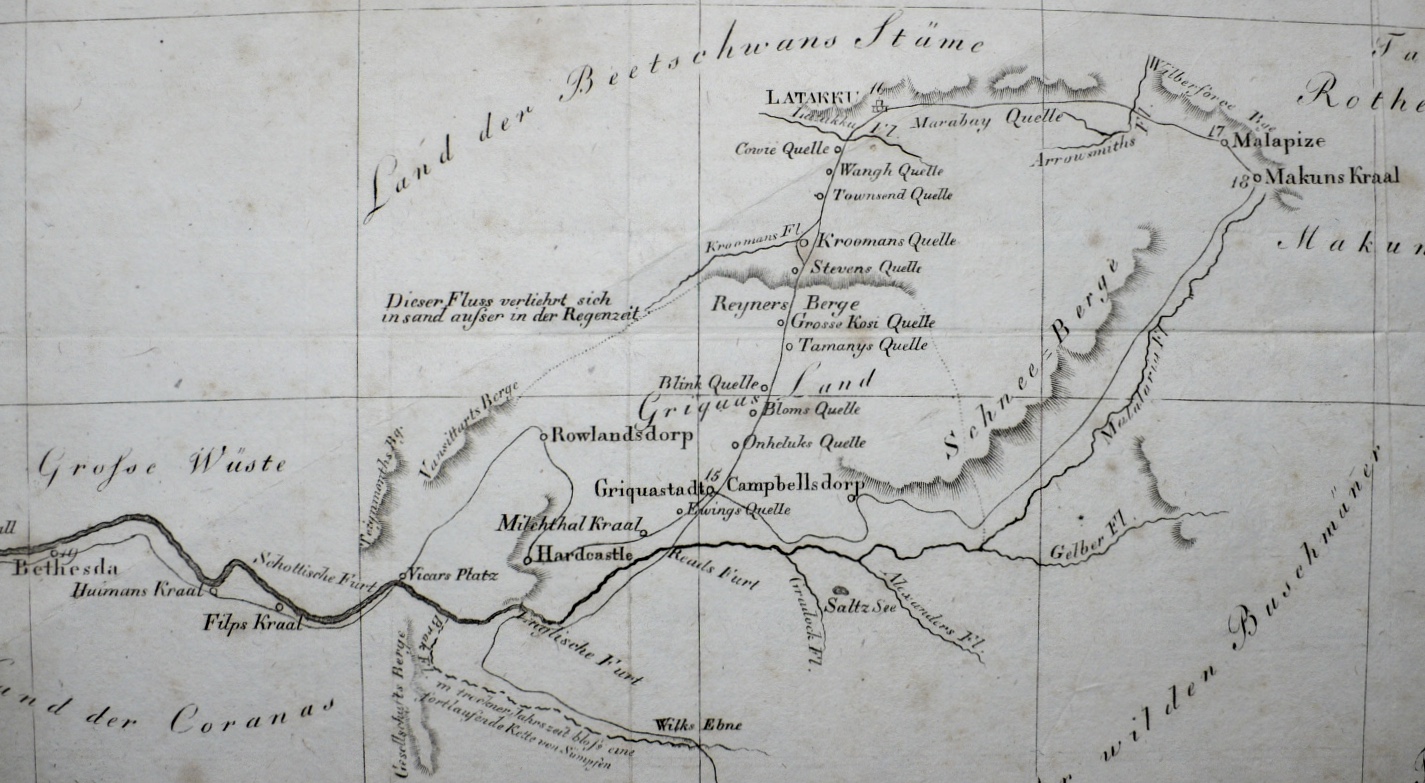 Land der Beetschwans Stäme
LATAKKU 16
Latakku Fl.
Marabay Quelle
Arrowsmiths Fl.
Wilberforce Bge
Ta
Rothe
17 Malapize
18 Makuns Kraal
Makun
Cowie Quelle
Wangh Quelle
Townsend Quelle
Kroomans Fl.
Kroomans Quelle
Stevens Quelle
Dieser Fluss verliehrt sich
in sand ausser in der Regenzeit
Reyners Berge
Grosse Kosi Quelle
Tamanys Quelle
Schnee=Berge
Malalarin Fl.
Blink Quelle
Griquas Land
Bloms Quelle
Vansittarts Berge
Rowlandsdorp
Onheluks Quelle
Teignmonths Bg.
Grosse Wüste
Griquastadt 15
Campbellsdorp
Ewings Quelle
Milchthal Kraal
Hardcastle
Gelber Fl.
all
19
Bethesda
Schottische Furt
Vicars Platz
Reads Furt
Huimans Kraal
Filps Kraal
Saltz See
Gradock Fl.
Alexanders Fl.
Englische Furt
Brak Fl.
Gesellschafts Berge
in trockner Jahrszeit bloss eine
fortlaufende Kette von Sümpfen
Wilks Ebne
und der Coranas
er wilden Buschmäner